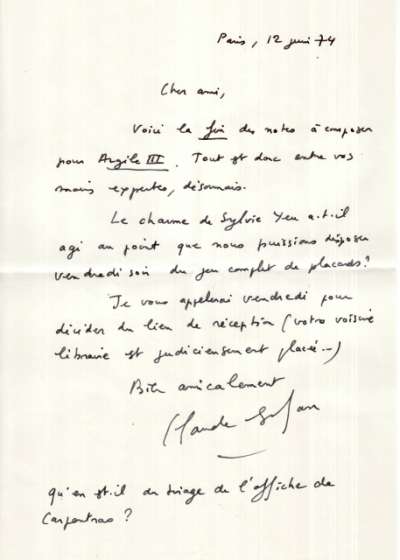 Paris, 12 juin 74
Cher ami,
Voici la fin des notes à composer
pour Argile III. Tout est donc entre vos
mains expertes, désormais.
Le charme de Sylvie Yeu a-t-il
agi au point que nous puissions disposer
vendredi soir du jeu complet de placards ?
Je vous appelerai vendredi pour
décider du lieu de réception (votre voisine
libraire est judicieusement placée...)
Bien amicalement
Claude
qu'en est-il du tirage de l'affiche de
Carpentras ?